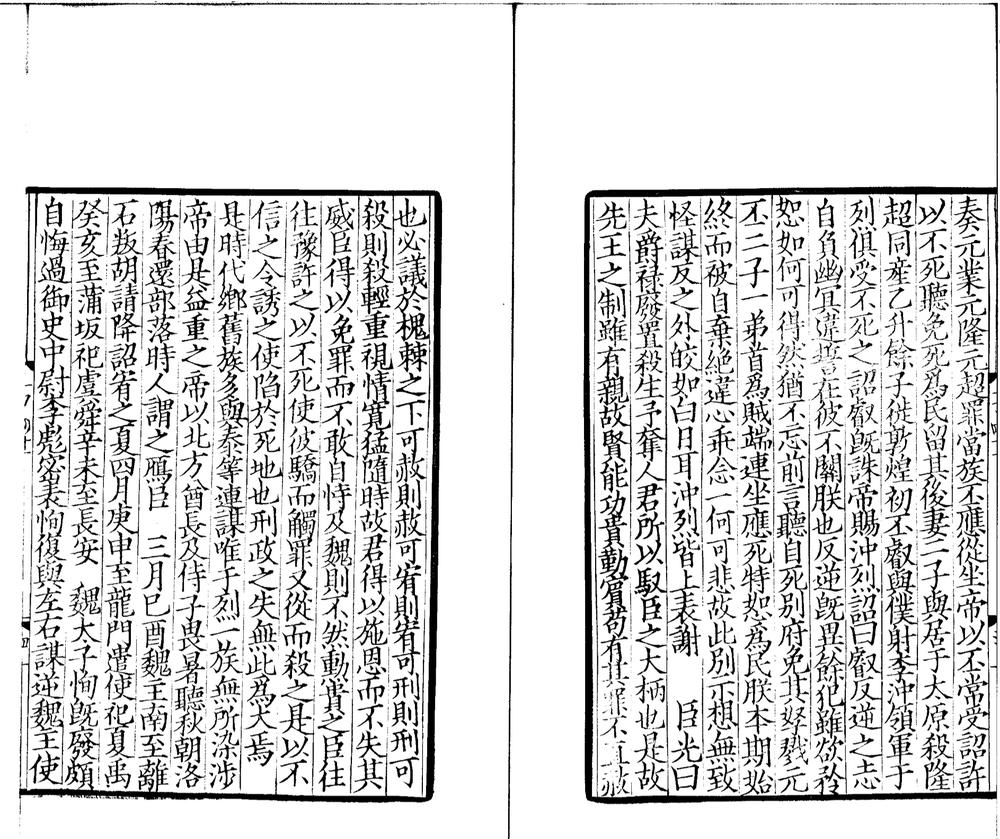 奏元業元隆元超罪當族丕應從坐帝以丕常受詔許
以不死聽免死爲民留其後妻二子與居于太原殺隆
超同產乙升餘子徙敦煌初丕叡與僕射李沖領軍于
烈俱受不死之詔叡旣誅帝賜沖烈詔曰叡反逆之志
自負幽冥違誓在彼不關朕也反逆旣異餘犯雖欲矜
恕如何可得然猶不忘前言聽自死別府免其孥戮元
丕二子一弟首爲賊端連坐應死特恕爲民朕本期始
終而彼自棄絕違心乖念一何可悲故此別示想無致
怪謀反之外皎如白日耳沖烈皆上表謝　臣光曰
夫爵祿廢置殺生予奪人君所以馭臣之大柄也是故
先王之制雖有親故賢能功貴勤賓苟有其罪不直赦
也必議於槐棘之下可赦則赦可宥則宥可刑則刑可
殺則殺輕重視情寛猛隨時故君得以施恩而不失其
威臣得以免罪而不敢自恃及魏則不然勳貴之臣往
往豫許之以不死使彼驕而觸罪又從而殺之是以不
信之令誘之使陷於死地也刑政之失無此爲大焉
是時代鄉舊族多與泰等連謀唯于烈一族無所染涉
帝由是益重之帝以北方酋長及侍子畏暑聽秋朝洛
陽春還部落時人謂之鴈臣　三月已酉魏主南至離
石叛胡請降詔宥之夏四月庚申至龍門遣使祀夏禹
癸亥至蒲坂祀虞舜辛未至長安　魏太子恂旣廢頗
自悔過御史中尉李彪密表恂復與左右謀逆魏主使